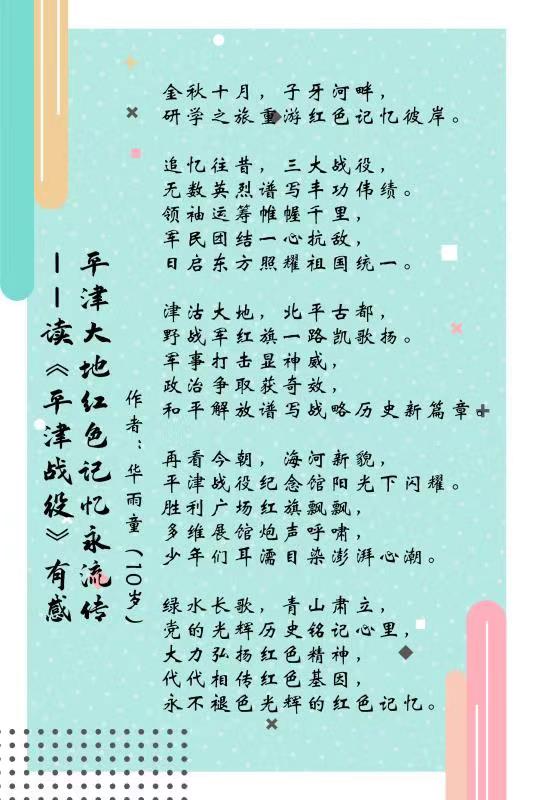 平津大地红色记忆永流传
——读《平津战役》有感
作者：华雨童（10岁）
金秋十月，子牙河畔，
研学之旅重游红色记忆彼岸。
追忆往昔，三大战役，
无数英烈谱写丰功伟绩。
领袖运筹帷幄千里，
军民团结一心抗敌，
日启东方照耀祖国统一。
津沽大地，北平古都，
野战军红旗一路凯歌扬。
军事打击显神威，
政治争取获奇效，
和平解放谱写战略历史新篇章。
再看今朝，海河新貌，
平津战役纪念馆阳光下闪耀。
胜利广场红旗飘飘，
多维展馆炮声呼啸，
少年们耳濡目染澎湃心潮。
绿水长歌，青山肃立，
党的光辉历史铭记心里，
大力弘扬红色精神，
代代相传红色基因，
永不褪色光辉的红色记忆。